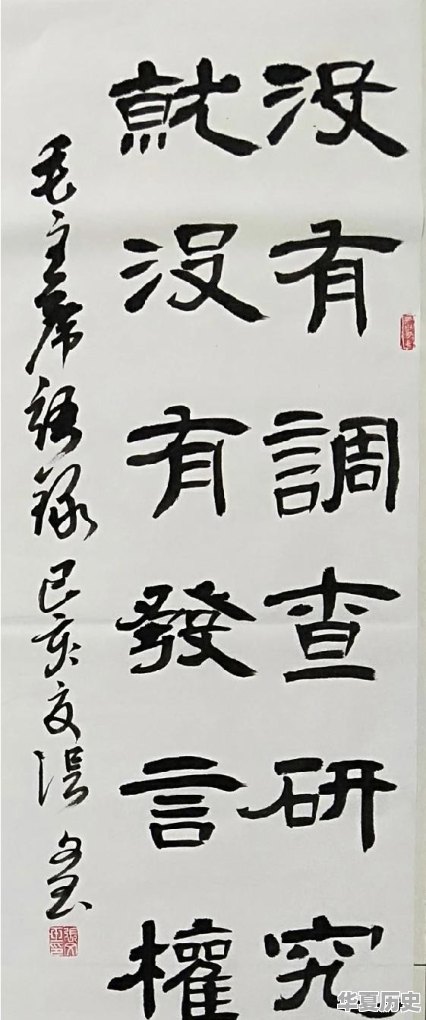 没有調查研究
就没有發言權
毛主席語錄 己亥 文
华夏历史